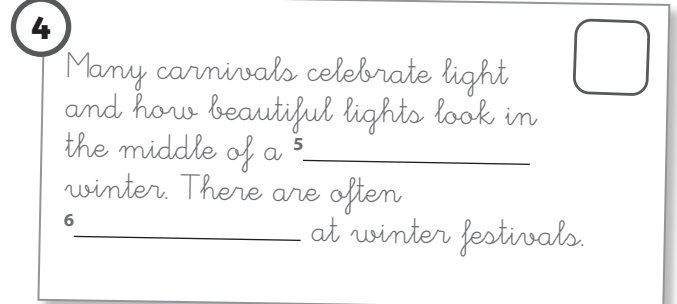 4
Many carnivals celebrate light
and how beautiful lights look in
the middle of a 5
winter. There are often
6 at winter festivals.